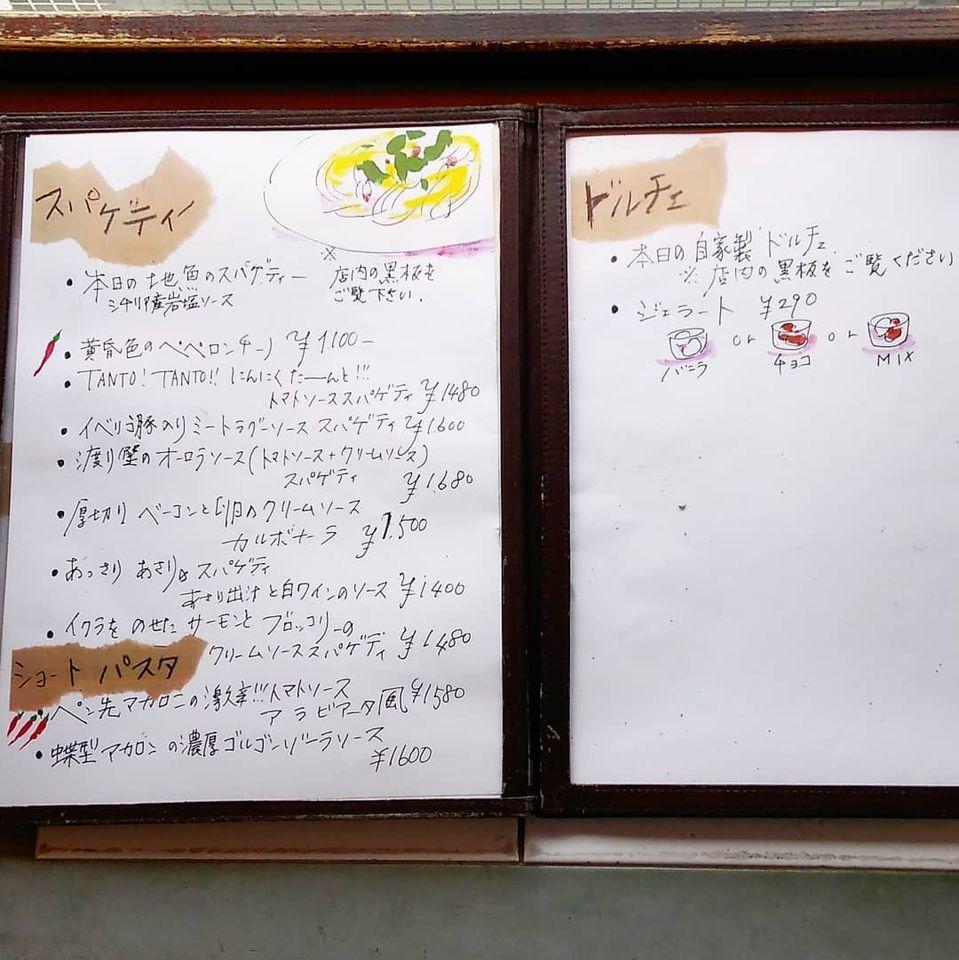 スパゲティ
・本日の地魚のスパゲティー
シチリア産岩塩ソース
※店内の黒板を
ご覧下さい.
・黄昏色のペペロンチーノ ¥1100-
・TANTO! TANTO!! にんにくたーんと!!!
トマトソーススパゲティ ¥1480
・イベリコ豚入りミートラグーソース スパゲティ ¥1.600
・渡り蟹のオーロラソース(トマトソース+クリームソース)
スパゲティ ¥1.680
・厚切り ベーコンと卵のクリームソース
カルボナーラ ¥1.500
・あっさり あさりのスパゲティ
あさり出汁と白ワインのソース ¥1400
・イクラを のせた サーモンと ブロッコリーの
クリームソーススパゲティ ¥1480
ショート パスタ
・ペン先マカロニの激辛!!!トマトソース
アラビアータ風 ¥1580
・蝶型マカロンの濃厚ゴルゴンゾーラソース
¥1600
ドルチェ
・本日の自家製ドルチェ
※店内の黒板をご覧ください
・ジェラート ¥290
バニラ or チョコ or MIX